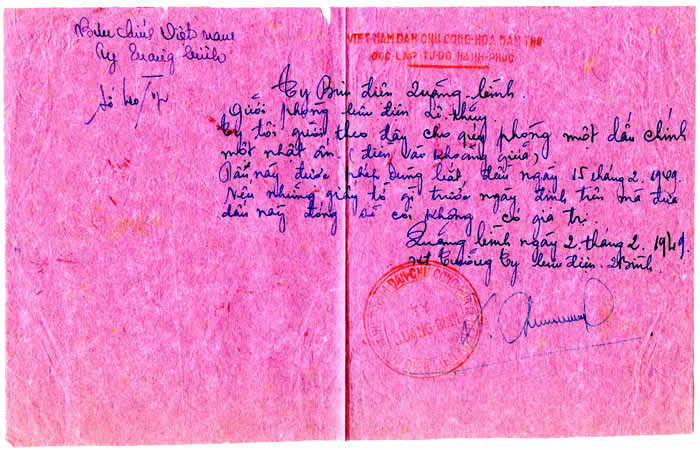 Bưu chính Việt nam
Ty Quảng bình
Số
VIỆT-NAM DÂN-CHỦ CỘNG-HÒA DÂN THỨ
ĐỘC-LẬP TỰ-DO HẠNH-PHÚC
Ty Bưu điện Quảng bình
gửi phòng bưu điện Lệ thủy
Ty tôi gửi theo đây cho quý phòng một dấu chính
một nhật ấn. (điền vào khoảng giữa)
Dấu này được phép dùng bắt đầu ngày 15 tháng 2. 1949.
Nếu những giấy tờ gì trước ngày định trên mà đưa
dấu này đóng sẽ coi không có giá trị.
Quảng bình ngày 2. tháng 2. 1949.
Trưởng Ty bưu điện QBình.
DÂN-CHỦ CỘNG-HÒA
QUẢNG BÌNH